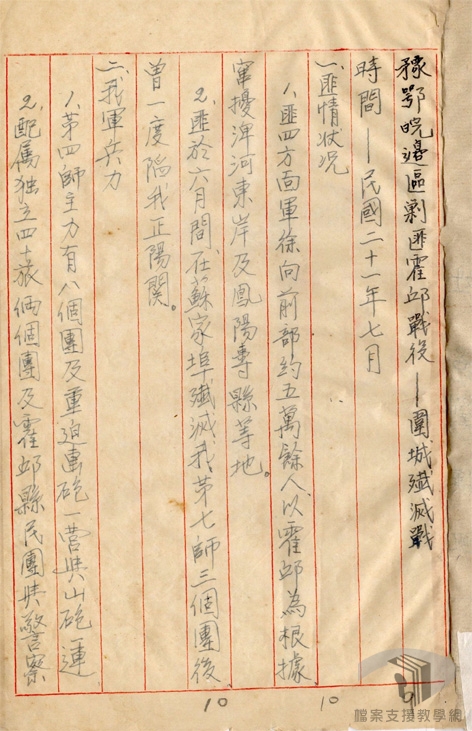 豫鄂皖邊區剿匪霍邱戰役—圍城殲滅戰
時間—民國二十一年七月
一、匪情狀況
1、匪四方面軍徐向前部約五萬餘人以霍邱為根據
竄擾淠河東岸及鳳陽專縣等地。
2、匪於六月間在蘇家埠殲滅我第七師三個團後
曾一度陷我正陽關。
二、我軍兵力
1、第四師主力有八個團及重迫擊砲一營與山砲一連
2、配属独立四十旅倆個團及霍邱縣民團與警察
10
10
9
檔案支援教學網